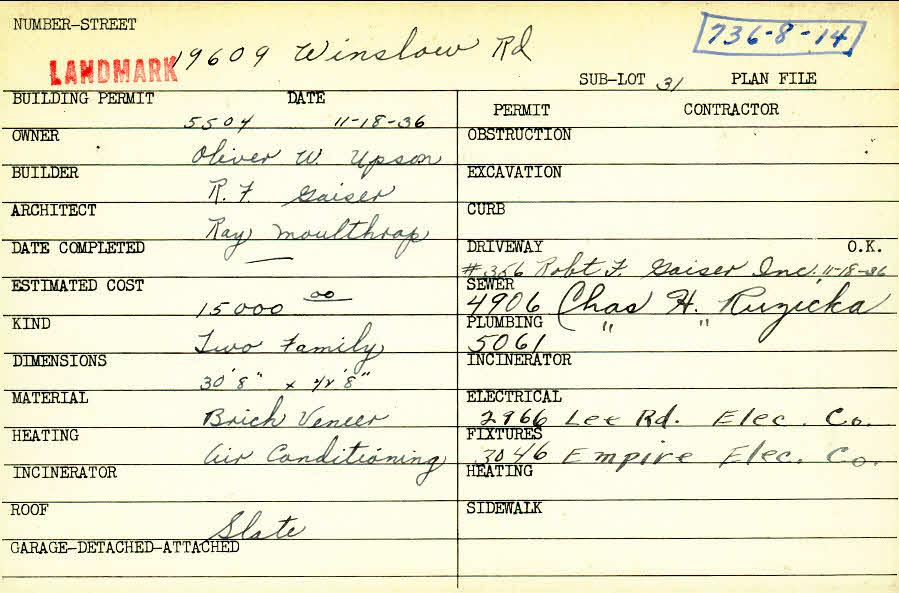 NUMBER-STREET
736-8-14
19609 Winslow Rd
LANDMARK
SUB-LOT 31 PLAN FILE
BUILDING PERMIT DATE
5504 11-18-36
PERMIT CONTRACTOR
OWNER
Oliver W Upson
OBSTRUCTION
BUILDER
R. F. Gaiser
EXCAVATION
ARCHITECT
Ray Moulthrop
CURB
DATE COMPLETED
—
DRIVEWAY O.K.
#356 Robt F. Gaiser Inc. 11-18-36
ESTIMATED COST
15000 00
SEWER
4906 Chas H. Ruzicka
KIND
Two Family
PLUMBING " "
5061
DIMENSIONS
30'8" x 42'8"
INCINERATOR
MATERIAL
Brick Veneer
ELECTRICAL
2966 Lee Rd. Elec. Co.
HEATING
Air Conditioning
FIXTURES
3046 Empire Elec. Co.
INCINERATOR
HEATING
ROOF
Slate
SIDEWALK
GARAGE-DETACHED-ATTACHED